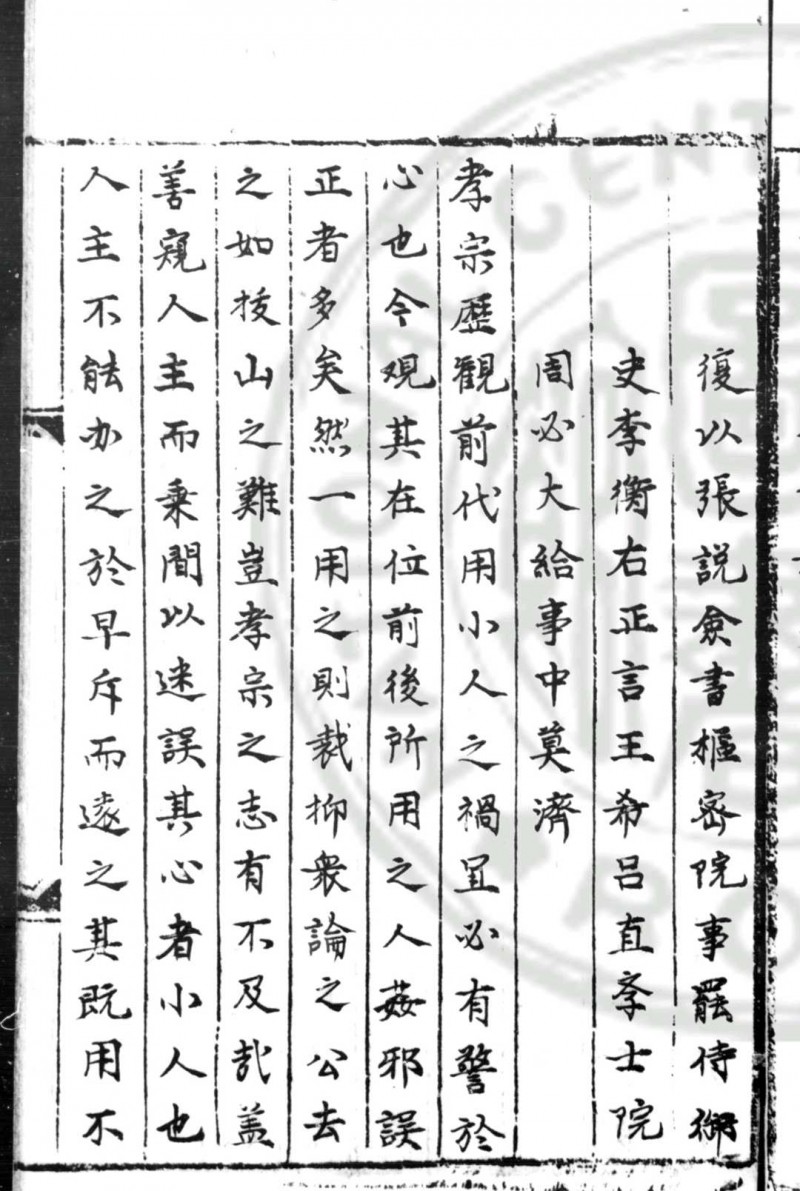 復以張説僉書樞密院事罷侍御
史李衡右正言王希呂直孝士院
周必大給事中莫濟
孝宗歷觀前代用小人之禍冝必有警於
心也今观其在位前後所用之人姦邪誤
正者多矣然一用之則裁抑衆論之公去
之如拔山之難豈孝宗之志有不及㢤盖
善窺人主而乗間以迷誤其心者小人也
人主不能办之於早斥而遠之其既用不